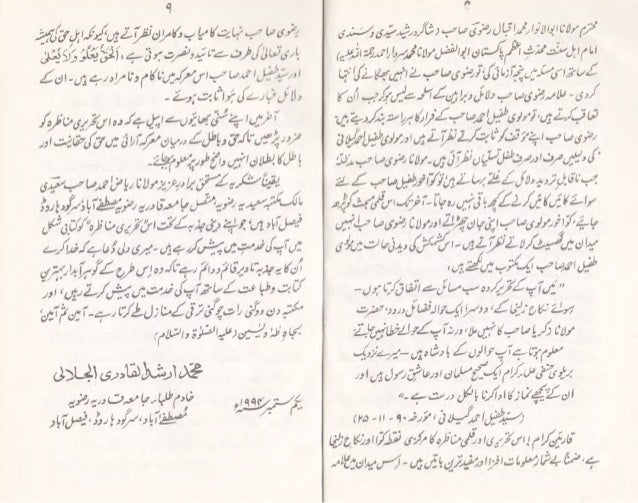 ۸
محترم مولانا ابوالانوار محمد اقبال رضوی صاحب (شاگرد رشید سیدی و سندی
امام اہل سنت محدث اعظم پاکستان ابوالفضل مولانا محمد سردار احمد رحمۃ اللہ علیہ)
کے ساتھ اسی مسئلہ میں پنجہ آزمائی کی تو رضوی صاحب نے انہیں بھگانے کی انتہا
کر دی۔ علامہ رضوی صاحب دلائل و براہین کے اسلحہ سے لیس ہو کر جب اُن کا
تعاقب کرتے ہیں، تو مولوی طفیل احمد صاحب کے فرار کا ہر راستہ بند کر دیتے ہیں
رضوی صاحب اپنے مؤقف کو ثابت کرتے نظر آتے ہیں اور مولوی طفیل احمد گیلانی
کی دلیلیں صرف اور صرف طفل تسلیاں نظر آتی ہیں۔ مولانا رضوی صاحب
جب ناقابلِ تردید دلائل کے برساتے ہیں تو گو آخر طفیل صاحب کے لئے
سوائے کائیں کائیں کرنے کے کچھ باقی نہیں رہ جاتا۔ آخر تک اس قلمی بحث کو پڑھ
جائیے، گو آخر مولوی صاحب اپنی جان چھڑاتے اور مولانا رضوی صاحب انہیں
میدان میں گھسیٹ کر لاتے نظر آتے ہیں۔ اس کشمکش کی دیدنی حالت میں مولوی
طفیل احمد صاحب ایک مکتوب میں لکھتے ہیں:
”میں آپ کے تحریر کردہ سب مسائل سے اتفاق کرتا ہوں۔
بسوائے نکاحِ زلیخا کے، دوسرا ایک حوالہ فضائلِ درود؛ حضرت
مولانا ذکریا صاحب کا نہیں ملا، ورنہ آپ کے حوالے خطا نہیں جاتے
معلوم ہوتا ہے آپ حوالوں کے بادشاہ ہیں — میرے نزدیک
بریلوی حنفی علماء کرام ایک صحیح مسلمان اور عاشقِ رسول ہیں اور
ان کے پیچھے نماز کا ادا کرنا بالکل درست ہے۔“
(سید طفیل احمد گیلانی، مؤرخہ ۹۰-۱۱-۲۵)
قارئین کرام! اس تحریری اور قلمی مناظرہ کا مرکزی نقطہ گو آ اور نکاحِ زلیخا
ہے، ضمناً بے شمار معلومات افزا اور مفید ترین باتیں ہیں۔ اس میدان میں علامہ
۹
رضوی صاحب نہایت کامیاب و کامران نظر آتے ہیں، کیونکہ اہلِ حق کی ہمیشہ
باری تعالیٰ کی طرف سے تائید و نصرت ہوتی ہے، اَلْحَقُّ یَعْلُوْ وَلَا یُعْلٰی
اور سید طفیل احمد صاحب اس معرکہ میں ناکام و نامراد رہے ہیں۔ ان کے
دلائل غبارے کی ہوا ثابت ہوئے۔
آخر میں اپنے سُنی بھائیوں سے اپیل ہے کہ وہ اس تحریری مناظرہ کو
ضرور پڑھیں تاکہ حق و باطل کے درمیان معرکہ آرائی میں حق کی حقانیت اور
باطل کا بطلان انہیں واضح طور پر معلوم ہو جائے۔
یقیناً شکریہ کے مستحق برادرِ عزیز مولانا ریاض احمد صاحب سعیدی
مالک مکتبہ سعیدیہ رضویہ متصل جامعہ قادریہ رضویہ مصطفےٰ آباد سرگودھا روڈ
فیصل آباد ہیں؛ جو اپنے دینی جذبہ کے تحت اس تحریری مناظرہ“ کو کتابی شکل
میں آپ کی خدمت میں پیش کر رہے ہیں۔ میری دلی دُعا ہے کہ خدا کرے
اُن کا یہ جذبہ تا دیر قائم و دائم رہے تاکہ وہ اس طرح کے گوہرِ آبدار بہترین
کتابت و طباعت کے ساتھ آپ کی خدمت میں پیش کرتے رہیں، اور
مکتبہ دن دوگنی رات چوگنی ترقی کے منازل طے کرتا رہے۔ آمین ثم آمین،
بجاہِ طٰہٰ و یٰسین (علیہ الصلوٰۃ والسلام)
محمد ارشد القادری الجلالی
خادم طلباء جامعہ قادریہ رضویہ
یکم ستمبر ۱۹۹۴ء
مصطفےٰ آباد، سرگودھا روڈ، فیصل آباد